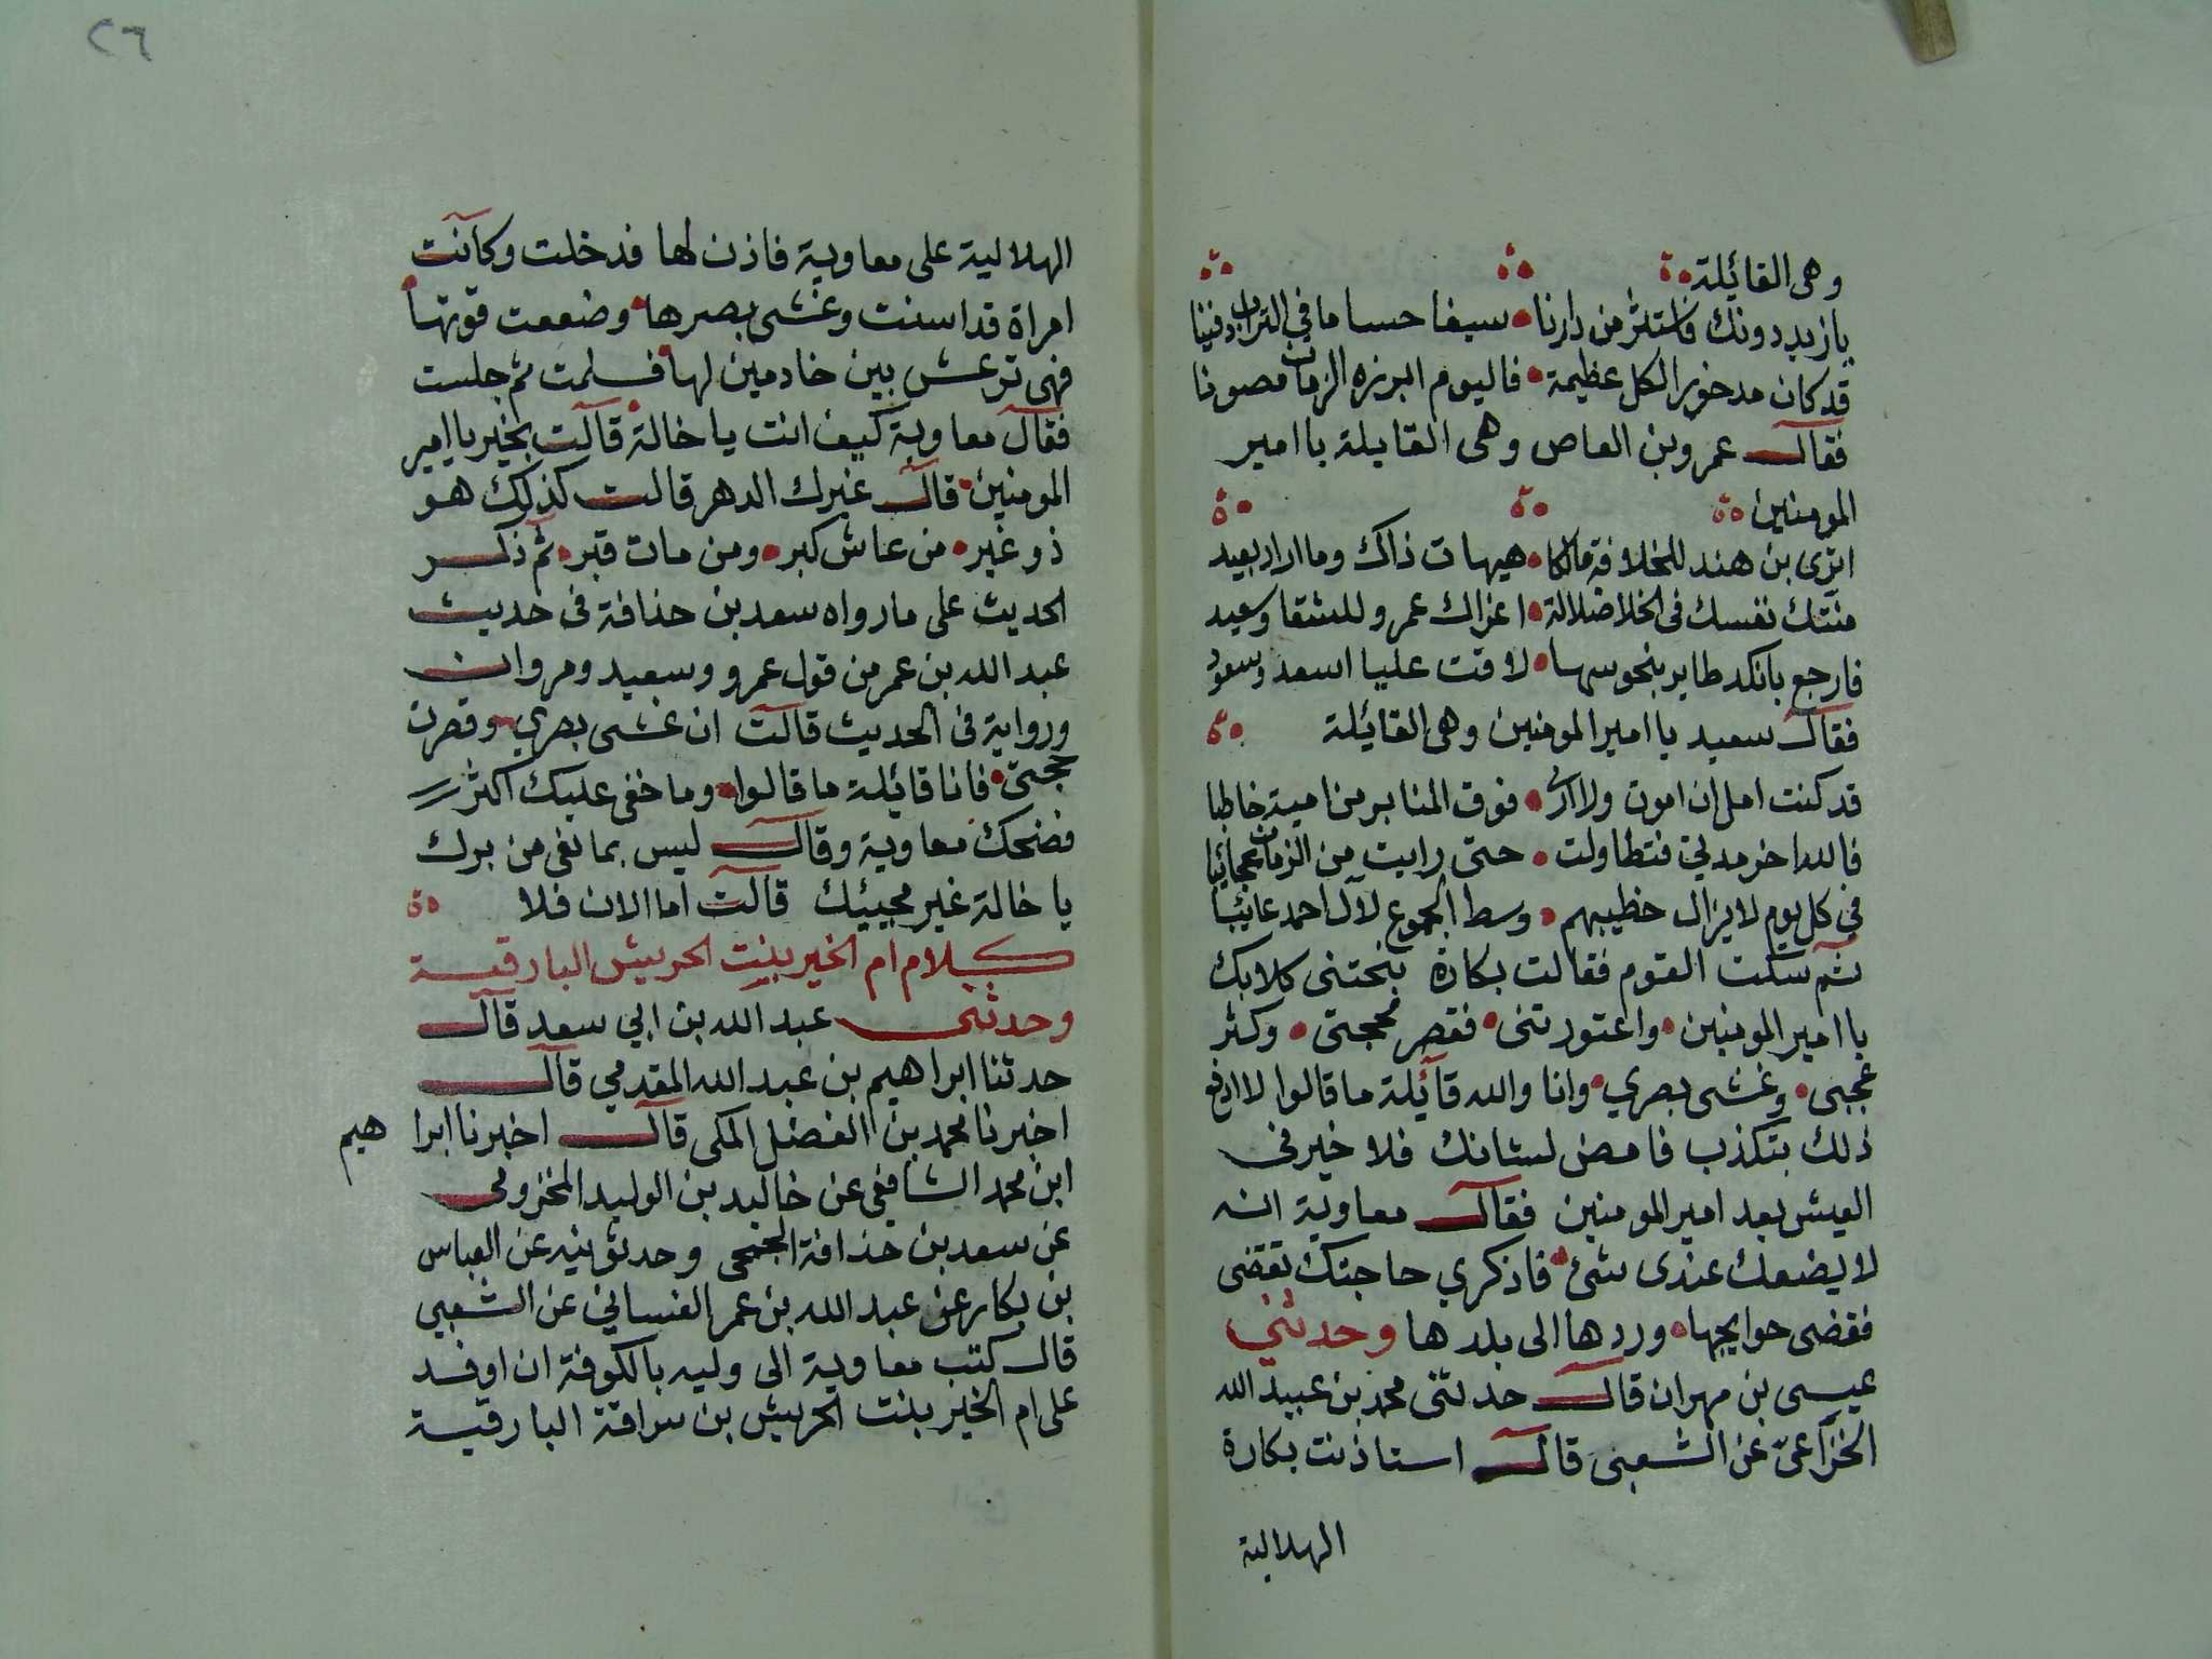 وهى القائيلة
يازيد دونك فاستثر من دارنا سيفا حساما في التراب دفينا
قد كان مدخورا لكل عظيمة فاليوم ابرزه الزمان مصونا
فقال عمرو بن العاص وهى القايلة يا امير
المومنين
اترى بن هند للخلافة مالكا هيهات ذاك وما اراد بعيد
منتك نفسك فى الخلا ضلالة اغراك عمرو للشقا وسعيد
فارجع بانكد طاير بنحوسها لاقت عليا اسعد وسعود
فقال سعيد يا امير المومنين وهى القائيلة
قد كنت امل ان امون ولا ارى فوق المنابر من امية خاطبا
فالله اخر مدتي فتطاولت حتى رايت من الزمان عجائبا
في كل يوم لا يزال خطيبهم وسط الجموع لآل احمد عائبا
ثم سكت القوم فقالت بكارة نبحتنى كلابك
يا امير المومنين واعتورتنى فقصر محجتى وكثر
عجبى وغشى بصري وانا والله قائيلة ما قالوا لا ادفع
ذلك بتكذب فامض لشانك فلا خير فى
العيش بعد امير المومنين فقال معاوية انه
لا يضعك عندى شئ فاذكري حاجتك تقضى
فقضى حوايجها وردها الى بلدها وحدثني
عيسى بن مهران قال حدثنى محمد بن عبيد الله
الخزاعى عن الشعبى قال استاذنت بكارة
الهلالية
٢٦
الهلالية على معاوية فاذن لها فدخلت وكانت
امراة قد اسنت وغشى بصرها وضعفت قوتها
فهى ترعش بين خادمين لها فسلمت ثم جلست
فقال معاوية كيف انت يا خالة قالت بخير يا امير
المومنين قال غيرك الدهر قالت كذلك هو
ذو غير من عاش كبر ومن مات قبر ثم ذكر
الحديث على ما رواه سعد بن حذافة فى حديث
عبد الله بن عمر من قول عمرو وسعيد ومروان
ورواية فى الحديث قالت ان غشى بصري وقصرت
حجتى فانا قائيلة ما قالوا وما خفى عليك اكثر
فضحك معاوية وقال ليس بما نغى من برك
يا خالة غير مجيئك قالت اما الان فلا
كلام ام الخير بنت الحريش البارقية
وحدثنى عبد الله بن ابي سعد قال
حدثنا ابراهيم بن عبد الله المقدمي قال
اخبرنا محمد بن الفضل المكى قال اخبرنا ابرا هيم
ابن محمد الشافعى عن خاليد بن الوليد المخزومى
عن سعد بن حذافة الجمحى وحدثونيه عن العباس
بن بكار عن عبد الله بن عمر الغساني عن الشعبي
قال كتب معاوية الى وليه بالكوفة ان اوفد
على ام الخير بنت الحريش بن سراقة البارقية